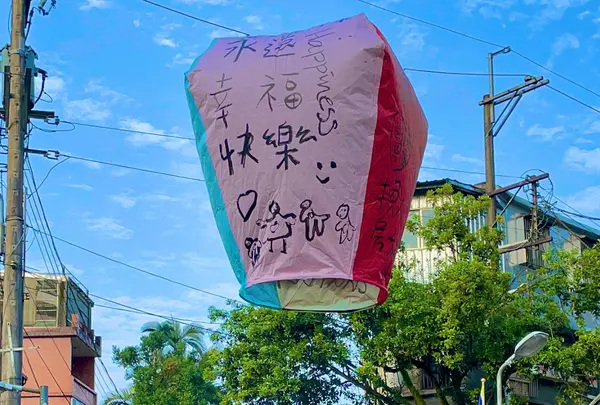 永遠
幸福
快樂
Happiness